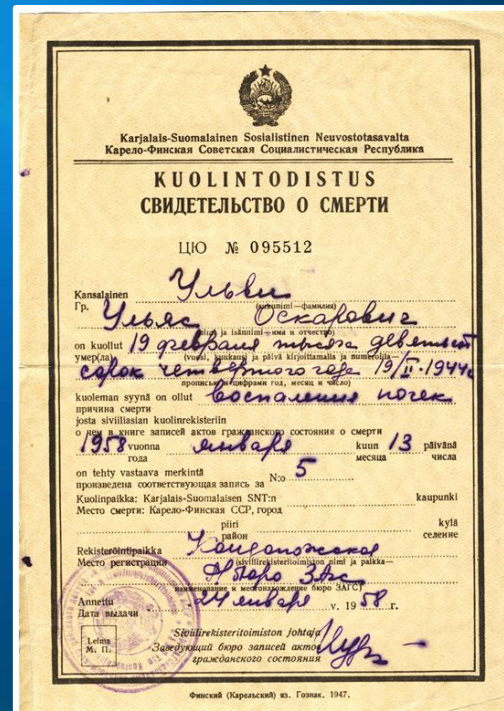 Karjalais-Suomalainen Sosialistinen Neuvostotasavalta
Карело-Финская Советская Социалистическая Республика
KUOLINTODISTUS
СВИДЕТЕЛЬСТВО О СМЕРТИ
ЦЮ № 095512
Kansalainen
Гр. Ульви
(sukunimi—фамилия)
Ульяс Оскарович
(nimi ja isännimi—имя и отчество)
on kuollut 19 февраля тысяча девятьсот
умер(ла) (vuosi, kuukausi ja päivä kirjoittamalla ja numeroilla—
сорок четвертого года 19/II-1944г
прописью и цифрами год, месяц и число)
kuoleman syynä on ollut воспаление почек
причина смерти
josta siviiliasian kuolinrekisteriin
о чем в книге записей актов гражданского состояния о смерти
1958 vuonna января kuun 13 päivänä
года месяца числа
on tehty vastaava merkintä N:o 5
произведена соответствующая запись за
Kuolinpaikka: Karjalais-Suomalaisen SNT:n kaupunki
Место смерти: Карело-Финская ССР, город
piiri kylä
район селение
Rekisteröintipaikka Кондопожское
Место регистрации (siviilirekisteritoimiston nimi ja paikka—
бюро ЗАГС
наименование и местонахождение бюро ЗАГС)
Annettu 24 января v. 1958 г.
Дата выдачи
Leima
М. П.
Siviilirekisteritoimiston johtaja
Заведующий бюро записей актов
гражданского состояния
Финский (Карельский) яз. Гознак. 1947.